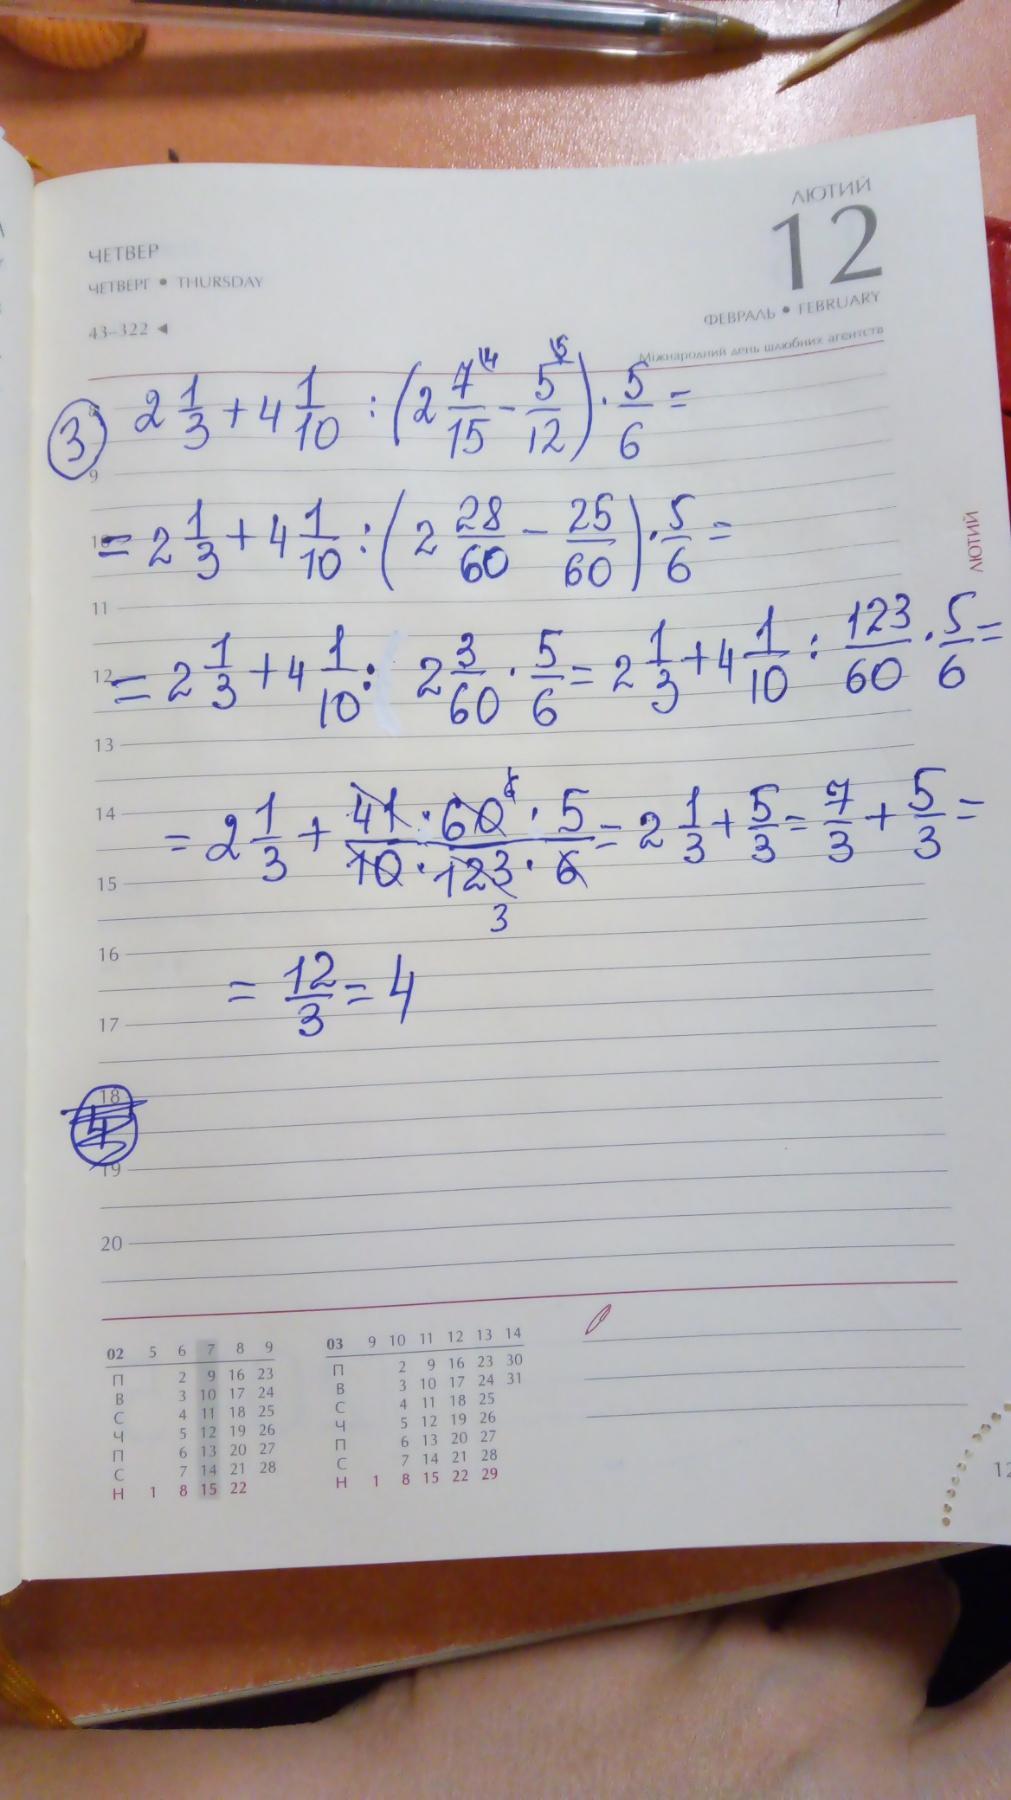 ЛЮТИЙ
12
ЧЕТВЕР
ЧЕТВЕРГ • THURSDAY
ФЕВРАЛЬ • FEBRUARY
43–322 ◄
Міжнародний день шлюбних агентств
3) 2 1/3 + 4 1/10 : (2 7/15 - 5/12) · 5/6 =
= 2 1/3 + 4 1/10 : (2 28/60 - 25/60) · 5/6 =
= 2 1/3 + 4 1/10 : 2 3/60 · 5/6 = 2 1/3 + 4 1/10 : 123/60 · 5/6 =
= 2 1/3 + 41 · 60 · 5 / 10 · 123 · 6 = 2 1/3 + 5/3 = 7/3 + 5/3 =
3
= 12/3 = 4
4
ЛЮТИЙ
9
11
12
13
14
15
16
17
18
19
20
02 5 6 7 8 9
П 2 9 16 23
В 3 10 17 24
С 4 11 18 25
Ч 5 12 19 26
П 6 13 20 27
С 7 14 21 28
Н 1 8 15 22
03 9 10 11 12 13 14
П 2 9 16 23 30
В 3 10 17 24 31
С 4 11 18 25
Ч 5 12 19 26
П 6 13 20 27
С 7 14 21 28
Н 1 8 15 22 29